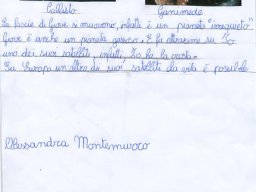 Callisto
Ganimede
Le fascie di Giove si muovono, infatti è un pianeta "irrequieto"
Giove è anche un pianeta gassoso. E fa attrazione su Io
uno dei suoi satelliti, infatti, Io ha la crosta.
Su Europa un altro di suoi satelliti la vita è possibile
Alessandra Montemurro